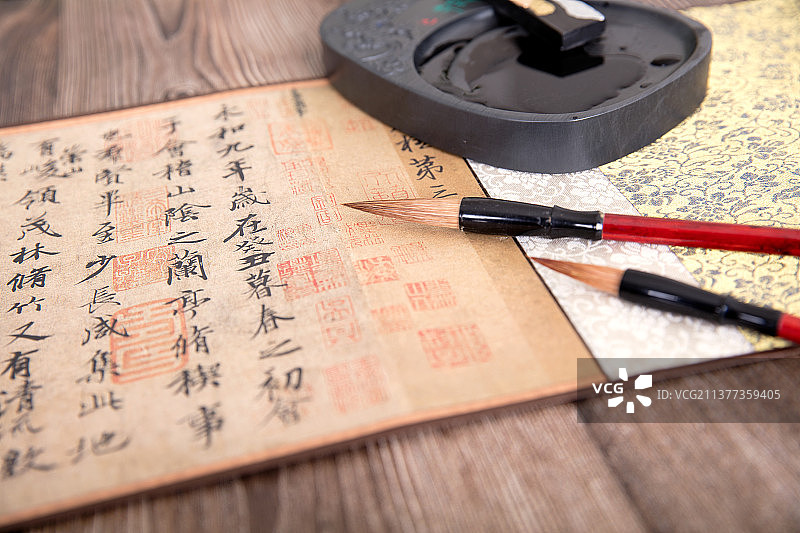 稧第三
永和九年歲在癸丑暮春之初會
于會稽山陰之蘭亭脩稧事
也群賢畢至少長咸集此地
有崇山峻領茂林脩竹又有清流激
VCG